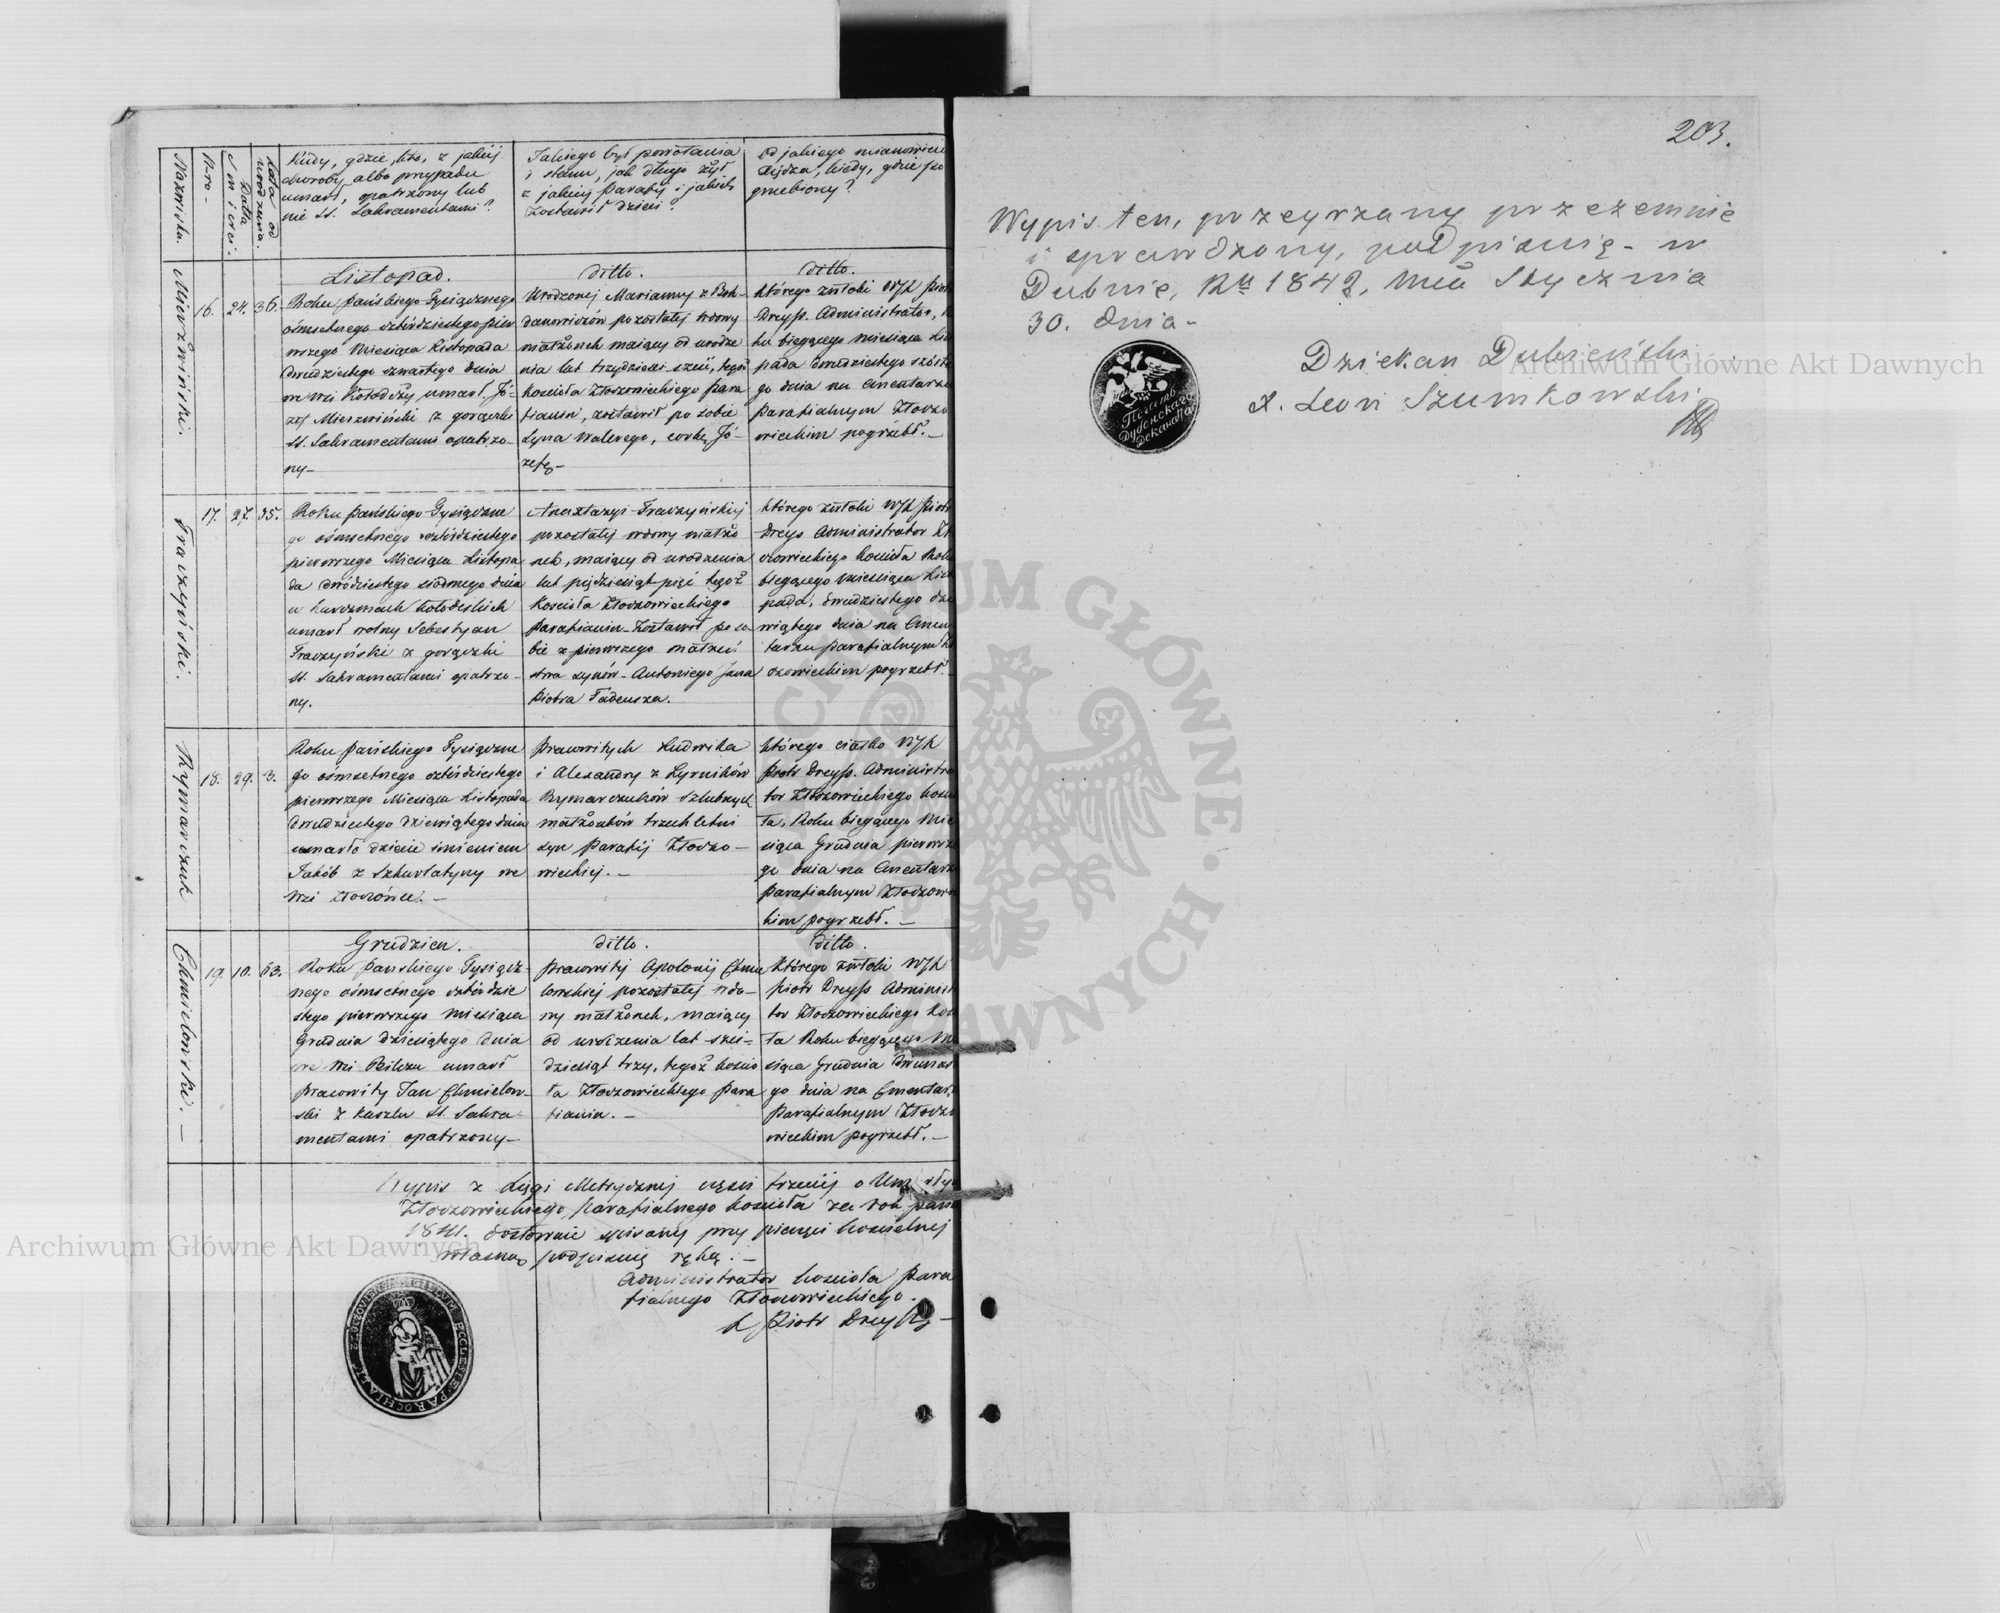 203.
Nazwiska.
N-ro -
Datta
Smierci.
Lata od
urodzenia.
Kiedy, gdzie, kto, z jakiej
choroby albo przypadu
umarł, opatrzony lub
nie SS. Sakramentami?
Jakiego był powołania
i stanu, jak długo żył
z jakiej Parafij i jakich
zostawił dzieci?
od jakiego mianowicie
Xiędza, kiedy, gdzie po
grzebiony?
Mierzwinski.
16.
24.
36.
Listopad.
Roku Pańskiego Tysiącznego
ośmsetnego cztérdziestego pier
wszego Miesiąca Listopada
dwudziestego czwartego dnia
we wsi Kołodeży umarł Jó-
zef Mierzwiński z gorączki
SS. Sakramentami opatrzo-
ny-
ditto.
Urodzonej Marianny z Boh-
danowiczów pozostałej wdowy
małżonek maiący od urodze
nia lat trzydzieści sześć, tegoż
Kościoła Złoczowieckiego para
fianin, zostawił po sobie
Syna Walerego, corkę Jó-
zefę-
ditto.
którego zwłoki WJX Piotr
Dreyss. Administrator,
ku biegącego miesiąca Lis
pada dwudziestego szóste
go dnia na Cmentarzu
Parafialnym Złoczo
wieckim pogrzebł.-
Fraczyński.
17.
27.
55.
Roku Pańskiego Tysiączne
go ośmsetnego cztérdziestego
pierwszego Miesiąca Listopa
da dwódziestego siodmego dnia
w karczmach Kołodeskich
umarł wolny Sebestyan
Fraczyński z gorączki
SS. Sakramentami opatrzo-
ny.
Anastazyi Fraczyńskiej
pozostałej wdowy małżo
nek, maiący od urodzenia
lat pięćdziesiąt pięć tegoż
Kościoła Złoczowieckiego
Parafianin-Zostawił po so-
bie z pierwszego małżeń
stwa synów-Antoniego Jana
Piotra Tadeusza.
którego zwłoki WJX Piotr
Dreyss Administrator Zł
oczowieckiego Kościoła Roku
biegącego Miesiąca Lis
pada, dwudziestego dzie
wiątego dnia na Cmen
tarzu parafialnym Zł
oczowieckim pogrzebł.-
Rymarczuk
18.
29.
3.
Roku Pańskiego Tysiączne
go ośmsetnego cztérdziestego
pierwszego Miesiąca Listopada
dwudziestego dziewiątego dnia
umarło dziecie imieniem
Jakób z Szkarlatyny we
wsi Złoczówce.-
Pracowitych Ludwika
i Alexandry z Łyrników
Rymarczuków szlubnych
małżonków trzechletni
syn Parafij Złoczo-
wieckiej.-
którego ciałko WJX
Piotr Dreyss. Administra
tor Złoczowieckiego Kości
ła, Roku biegącego Mie
siąca Grudnia pierwsze
go dnia na Cmentarzu
Parafialnym Złoczowi
kim pogrzebł.-
Chmielowski.-
19.
10.
63.
Grudzien.
Roku Pańskiego Tysiącz-
nego ośmsetnego cztérdzie
stego pierwszego miesiąca
Grudnia dziesiątego dnia
we wsi umarł
Pracowity Jan Chmielow-
ski z Kaszlu SS. Sakra-
mentami opatrzony-
ditto.
Pracowitej Apolonij Chmie
lowskiej pozostałej wdo-
wy małżonek, maiący
od urodzenia lat sześ-
dziesiąt trzy, tegoż kościo
ła Złoczowieckiego Para
fianin.-
ditto.
Którego zwłoki WJX
Piotr Dreyss Administ
tor Złoczowieckiego Koś
ła Roku biegącego Mi
siąca Grudnia dwunas
go dnia na Cmentar
Parafialnym Złoczo
wieckim pogrzebł.-
Wypis z Xięgi Metrycznej części trzeciej o Umarłych
Złoczowieckiego Parafialnego Kościoła za rok pańs
1841. dosłownie spisany przy pieczęci kościelnej
własną podpisuię ręką.-
Administrator Kościoła Para
fialnego Złoczowieckiego.
X Piotr Dreyss
Wypis ten, przeyrzany przezemnie
i sprawdzony, podpisuię- w
Dubnie, Ru 1842, Mca Stycznia
30. dnia-
Dziekan Dubieński
X. Leon Szumkowski
Печать
Дубенскаго
Деканата
Archiwum Główne Akt Dawnych
Archiwum Główne Akt Dawnych
ARCHIWUM GŁÓWNE · AKT DAWNYCH ·